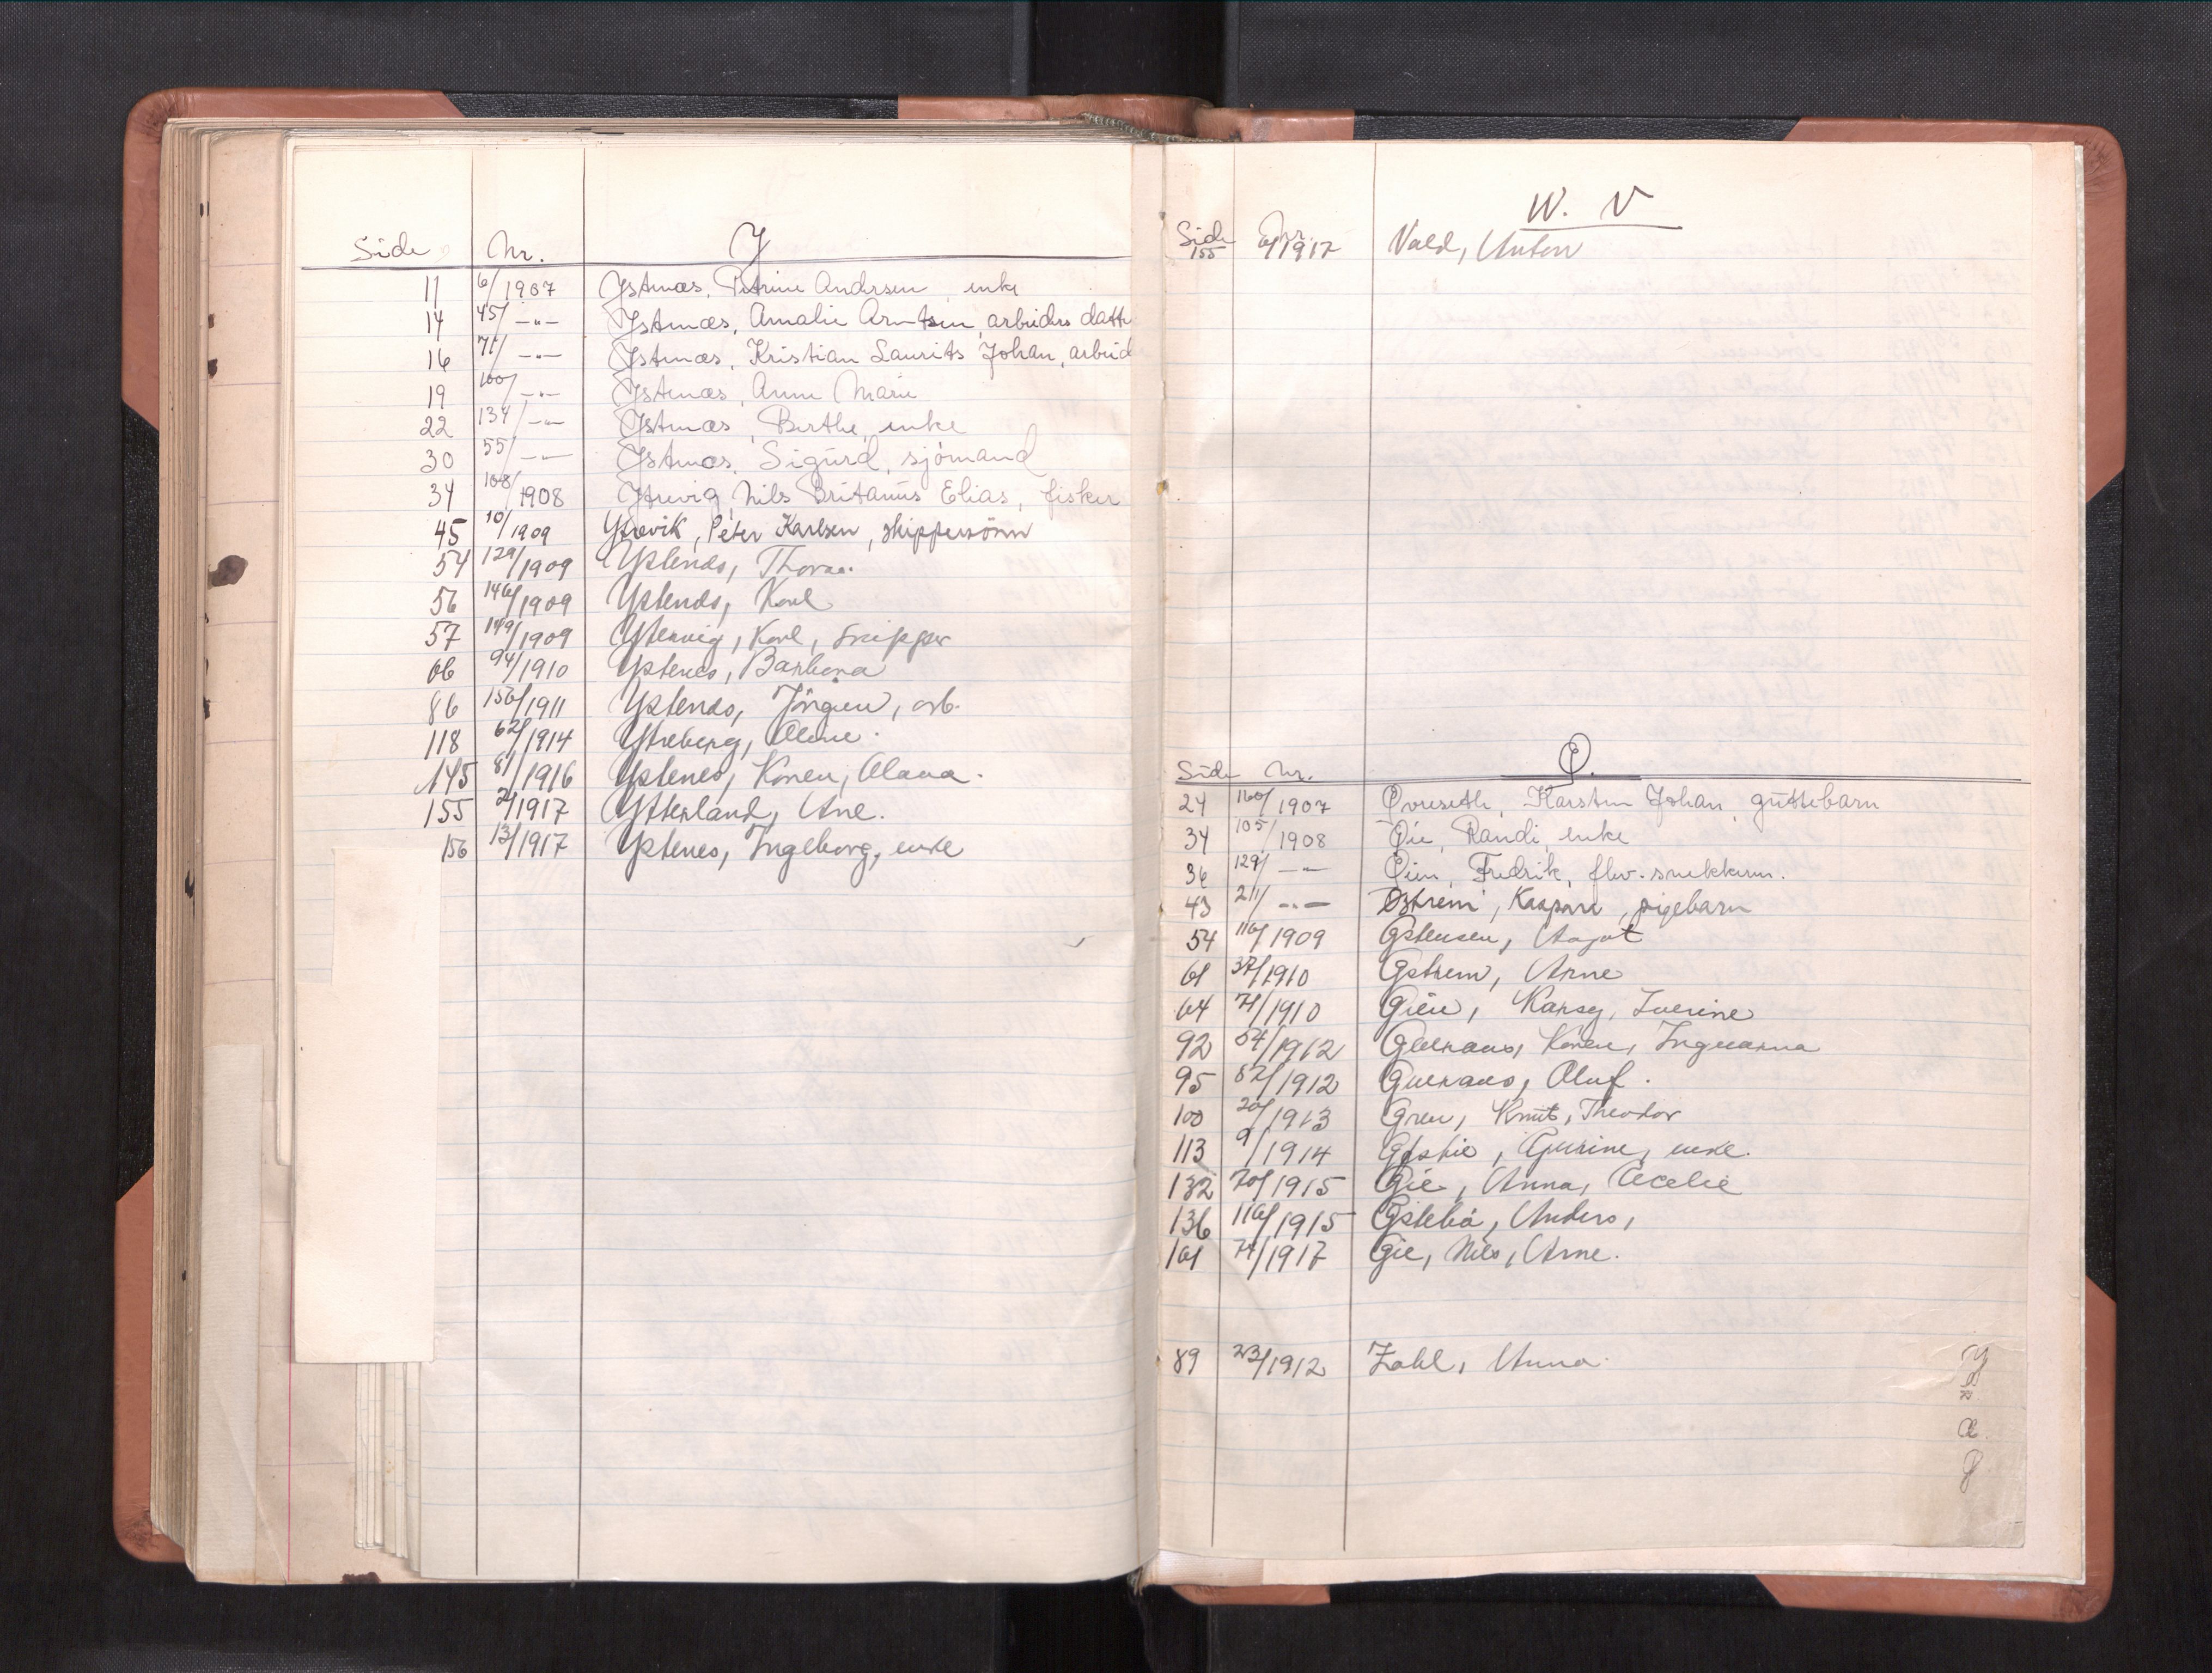 Side Nr. Y
11 6/1907 Ystenæs, Petrine Andersen, enke
14 45/ —"— Ystenæs, Amalie Arntsen, arbeiders datte
16 71/ —"— Ystenæs, Kristian Laurits Johan, arbeid
19 100/ —"— Ystenæs, Anne Marie
22 134/ —"— Ystenæs, Berthe, enke
30 55/ —"— Ystenæs, Sigurd, sjömand
34 108/1908 Ytrevig, Nils Britanus Elias, fisker
45 10/1909 Ytrevik, Peter Karlsen, skippersönn
54 129/1909 Ystenæs, Thora.
56 146/1909 Ystenæs, Karl
57 149/1909 Ytrevig, Karl, Skipper
66 94/1910 Ystenes, Barbara
86 156/1911 Ystenæs, Jörgen, arb.
118 62/1914 Ytreberg, Oline.
145 81/1916 Ystenes, Karen, Olava.
155 2/1917 Ytterland, Ane.
156 13/1917 Ystenes, Ingeborg, enke
W. V
Side Nr.
155 6/1917 Vald, Anton
Ø.
Side Nr.
24 160/1907 Øvreseth, Karsten Johan, guttebarn
34 105/1908 Øie, Randi, enke
36 129/ —"— Øien, Fredrik, fhv. snekkerm.
43 211/ —"— Østrem, Kaspara, pigebarn
54 116/1909 Østensen, Aagot
61 37/1910 Østrem, Arne
64 71/1910 Øien, Iverine
92 54/1912 Øveraas, Karen, Ingvarna
95 82/1912 Øveraas, Oluf.
100 20/1913 Øren, Knut, Theodor
113 9/1914 enke.
132 70/1915 Øie, Anna, Cecelie
136 116/1915 Østebö, Anders,
161 74/1917 Øie, Nils, Arne.
89 23/1912 Zahl, Anna.
Y
Z
Æ
Ø